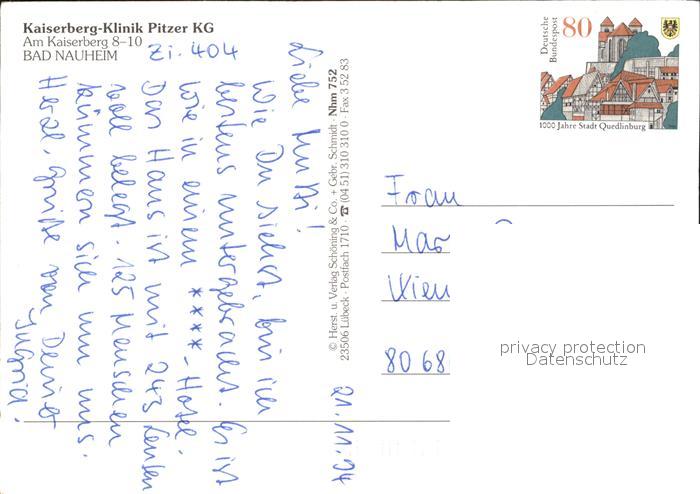 Kaiserberg-Klinik Pitzer KG
Am Kaiserberg 8–10
BAD NAUHEIM
Zi. 404
21.11.94
Liebe Mutti!
Wie Du siehst, bin ich
bestens untergebracht. Es ist
wie in einem ****-Hotel.
Das Haus ist mit 243 Leuten
voll belegt. 125 Menschen
kümmern sich um uns.
Herzl. Grüße von Deiner
Ingrid.
© Herst. u. Verlag Schöning & Co. + Gebr. Schmidt · Nhm 752
23506 Lübeck · Postfach 1710 · ☎ (04 51) 310 310 0 · Fax 3 52 83
Deutsche
Bundespost
80
1000 Jahre Stadt Quedlinburg
Frau
Mar
Wien
80 68
privacy protection
Datenschutz